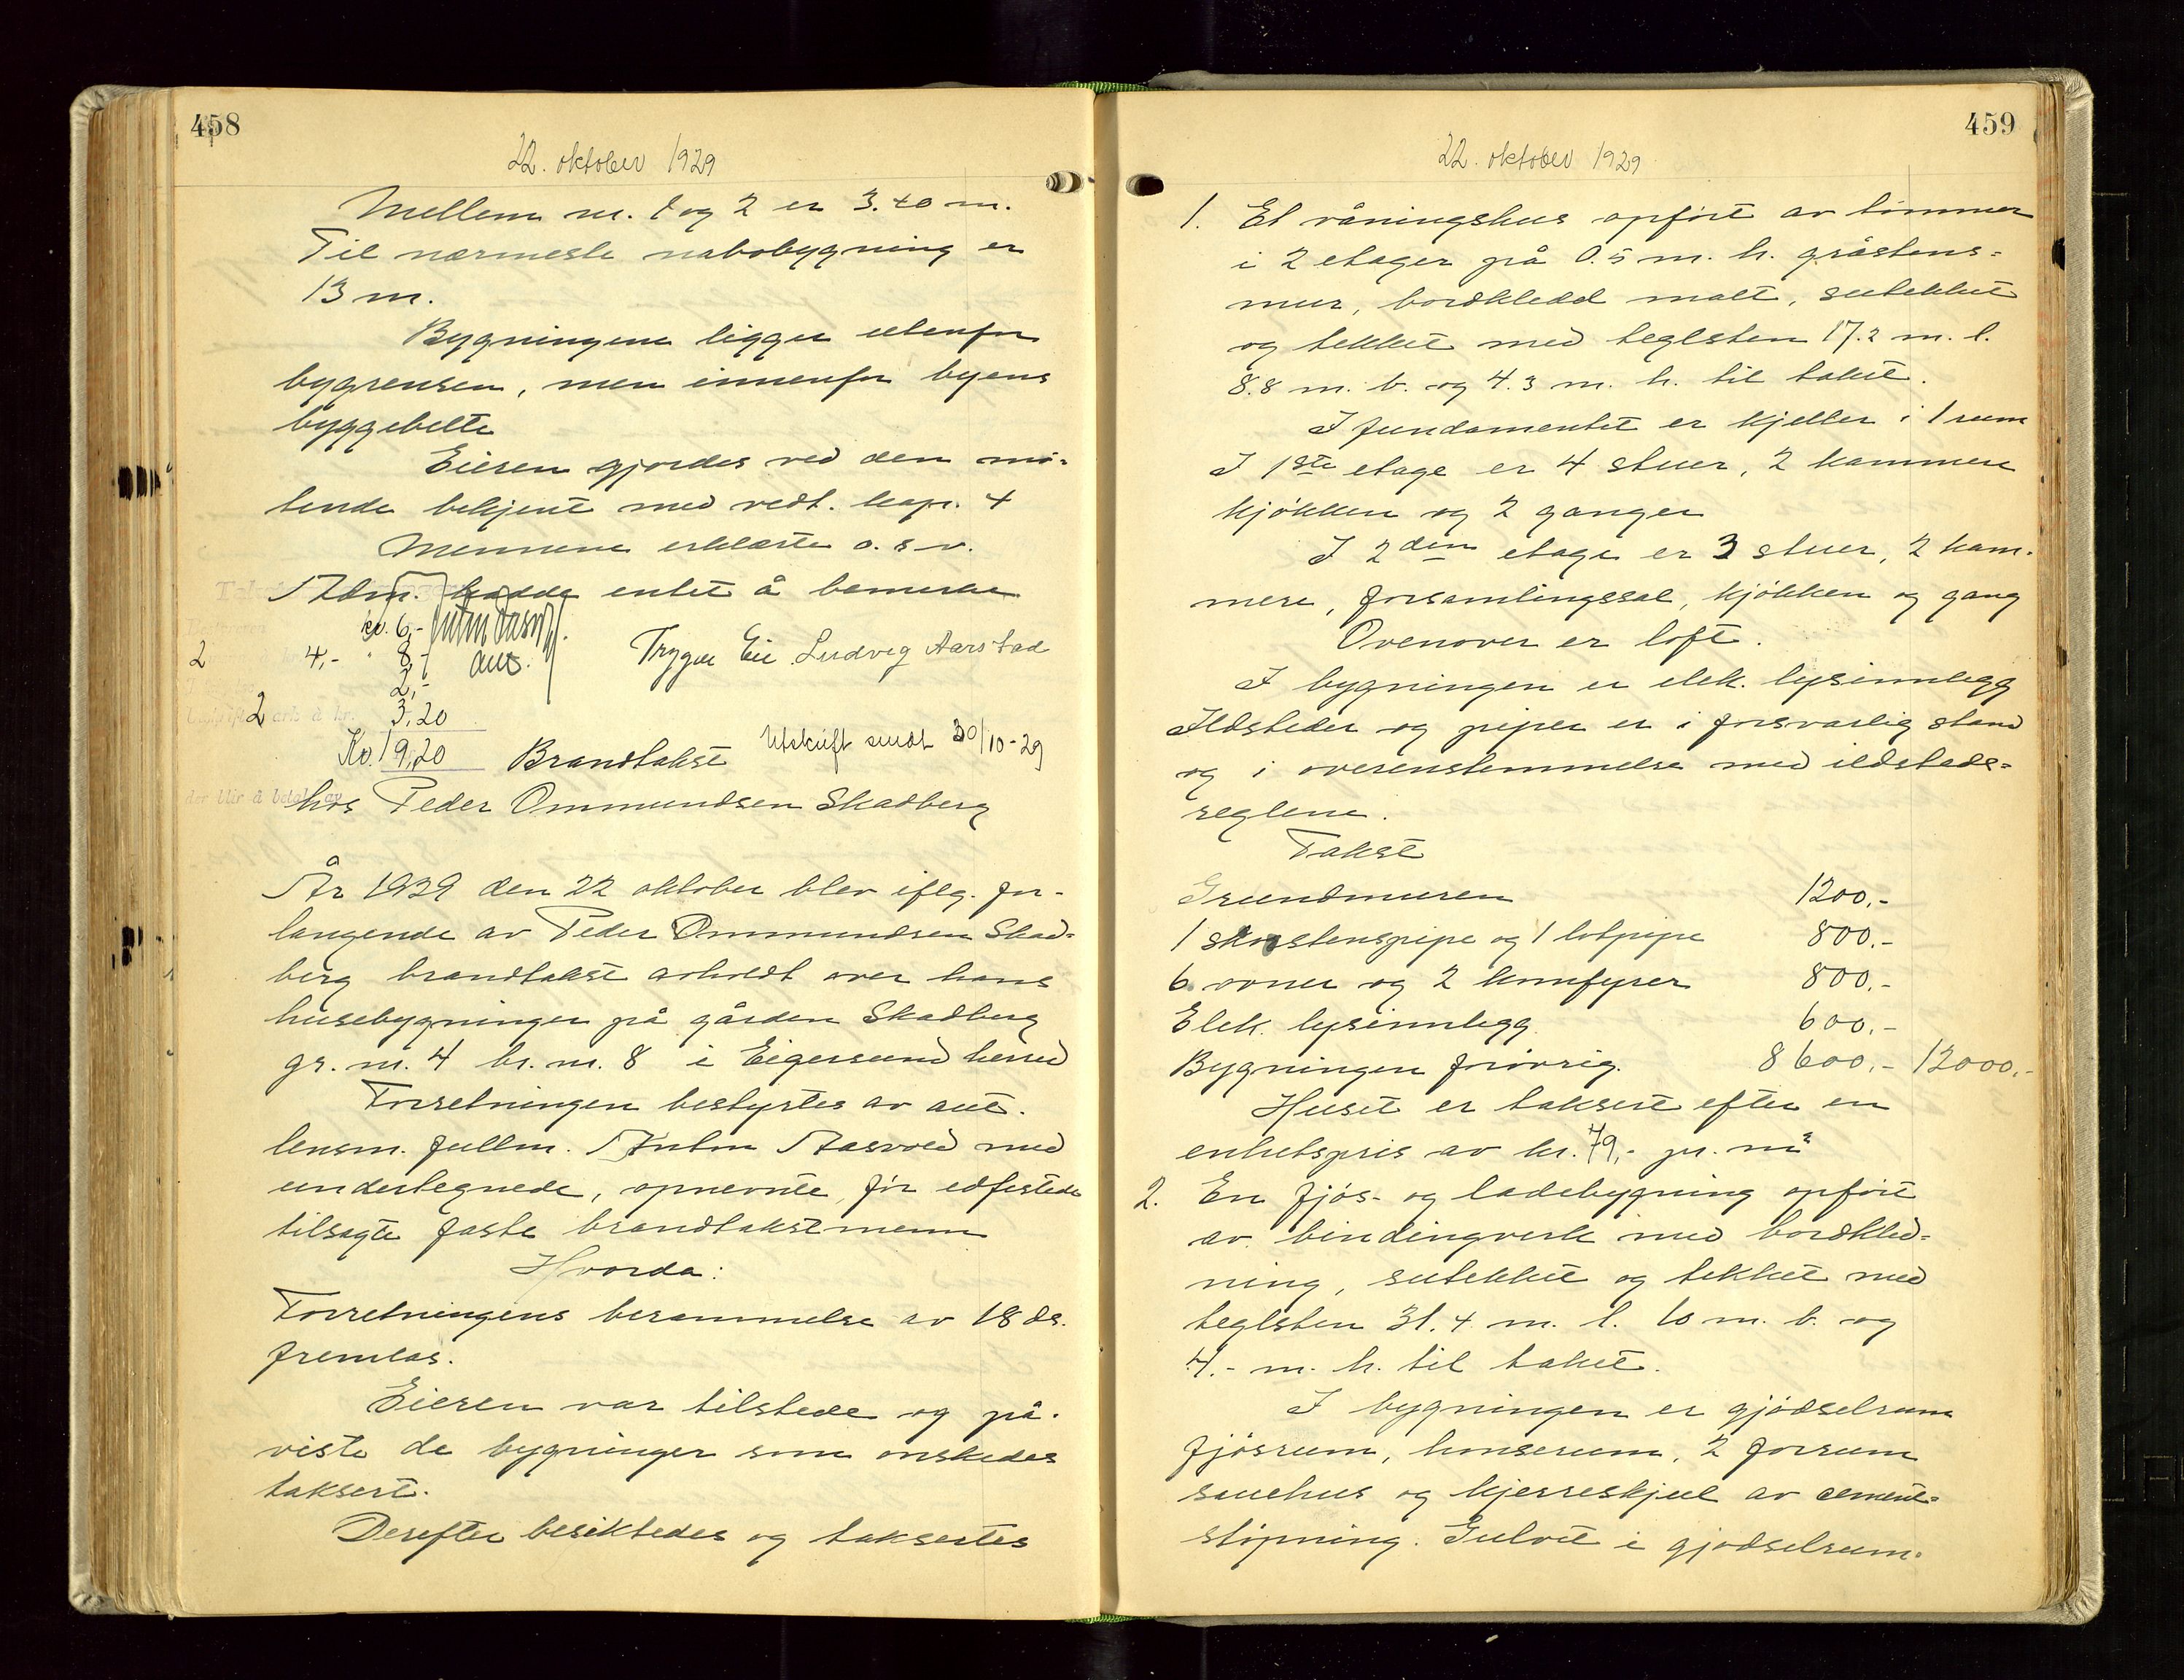 458
22. oktober 1929
Mellem nr. 1 og 2 er 3.40 m.
Til nærmeste nabobygning er
13 m.
Bygningene ligger utenfor
bygrensen, men innenfor byens
byggebelte
Eieren gjordes ved den mø-
tende bekjent med vedt. kap. 4
Mennene erklærte o.s.v.
Adm. hadde entet å bemerke
kr. 6,-
2 4,- " 8,- aut. Trygve Eie Ludvig Aarstad
2,-
2 ark à kr. 3,20
Kr. 19,20 Brandtakst Utskrift sendt 30/10-29
der blir å betale av
hos Peder Ommundsen Skadberg
År 1929 den 22 oktober blev iflg. for-
langende av Peder Ommundsen Skad-
berg brandtakst avholdt over hans
husebygninger på gården Skadberg
gr. nr. 4 br. nr. 8 i Eigersund herred
Forretningen bestyrtes av aut.
lensm. fullm. Anton Aasvold med
undertegnede, opnevnte, før edfestede
tilsagte faste brandtakstmenn
Hvorda:
Forretningens berammelse av 18 ds.
fremlas.
Eieren var tilstede og på-
viste de bygninger som ønskedes
taksert.
Derefter besiktedes og taksertes
459
22. oktober 1929
1. Et våningshus opført av tømmer
i 2 etager på 0.5 m. h. gråstens-
mur, bordkledd malt, sutekket
og tekket med teglsten 17.2 m. l.
8.8 m. b. og 4.3 m. h. til taket.
I fundamentet er kjeller i 1 rum
I 1ste etage er 4 stuer, 2 kammere
kjøkken og 2 ganger
I 2den etage er 3 stuer, 2 kam-
mere, forsamlingssal, kjøkken og gang
Ovenover er loft.
I bygningen er elek. lysinnlegg
Ildsteder og piper er i forsvarlig stand
og i overenstemmelse med ildsteds-
reglene.
Takst
Grundmuren 1200,-
1 skorstenspipe og 1 lotpipe 800.-
6 ovner og 2 komfyrer 800,-
Elek. lysinnlegg 600,-
Bygningen forøvrig. 8600,- 12000,-
Huset er taksert efter en
enhetspris av kr. 79,- pr. m²
2. En fjøs- og ladebygning opført
av bindingverk med bordkled-
ning, sutekket og tekket med
teglsten 31.4 m. l. 10 m. b. og
4.- m. h. til taket.
I bygningen er gjødselrum
fjøsrum, hønserum, 2 forrum
sauehus og kjerreskjul av cement-
støpning. Gulvet i gjødselrum-